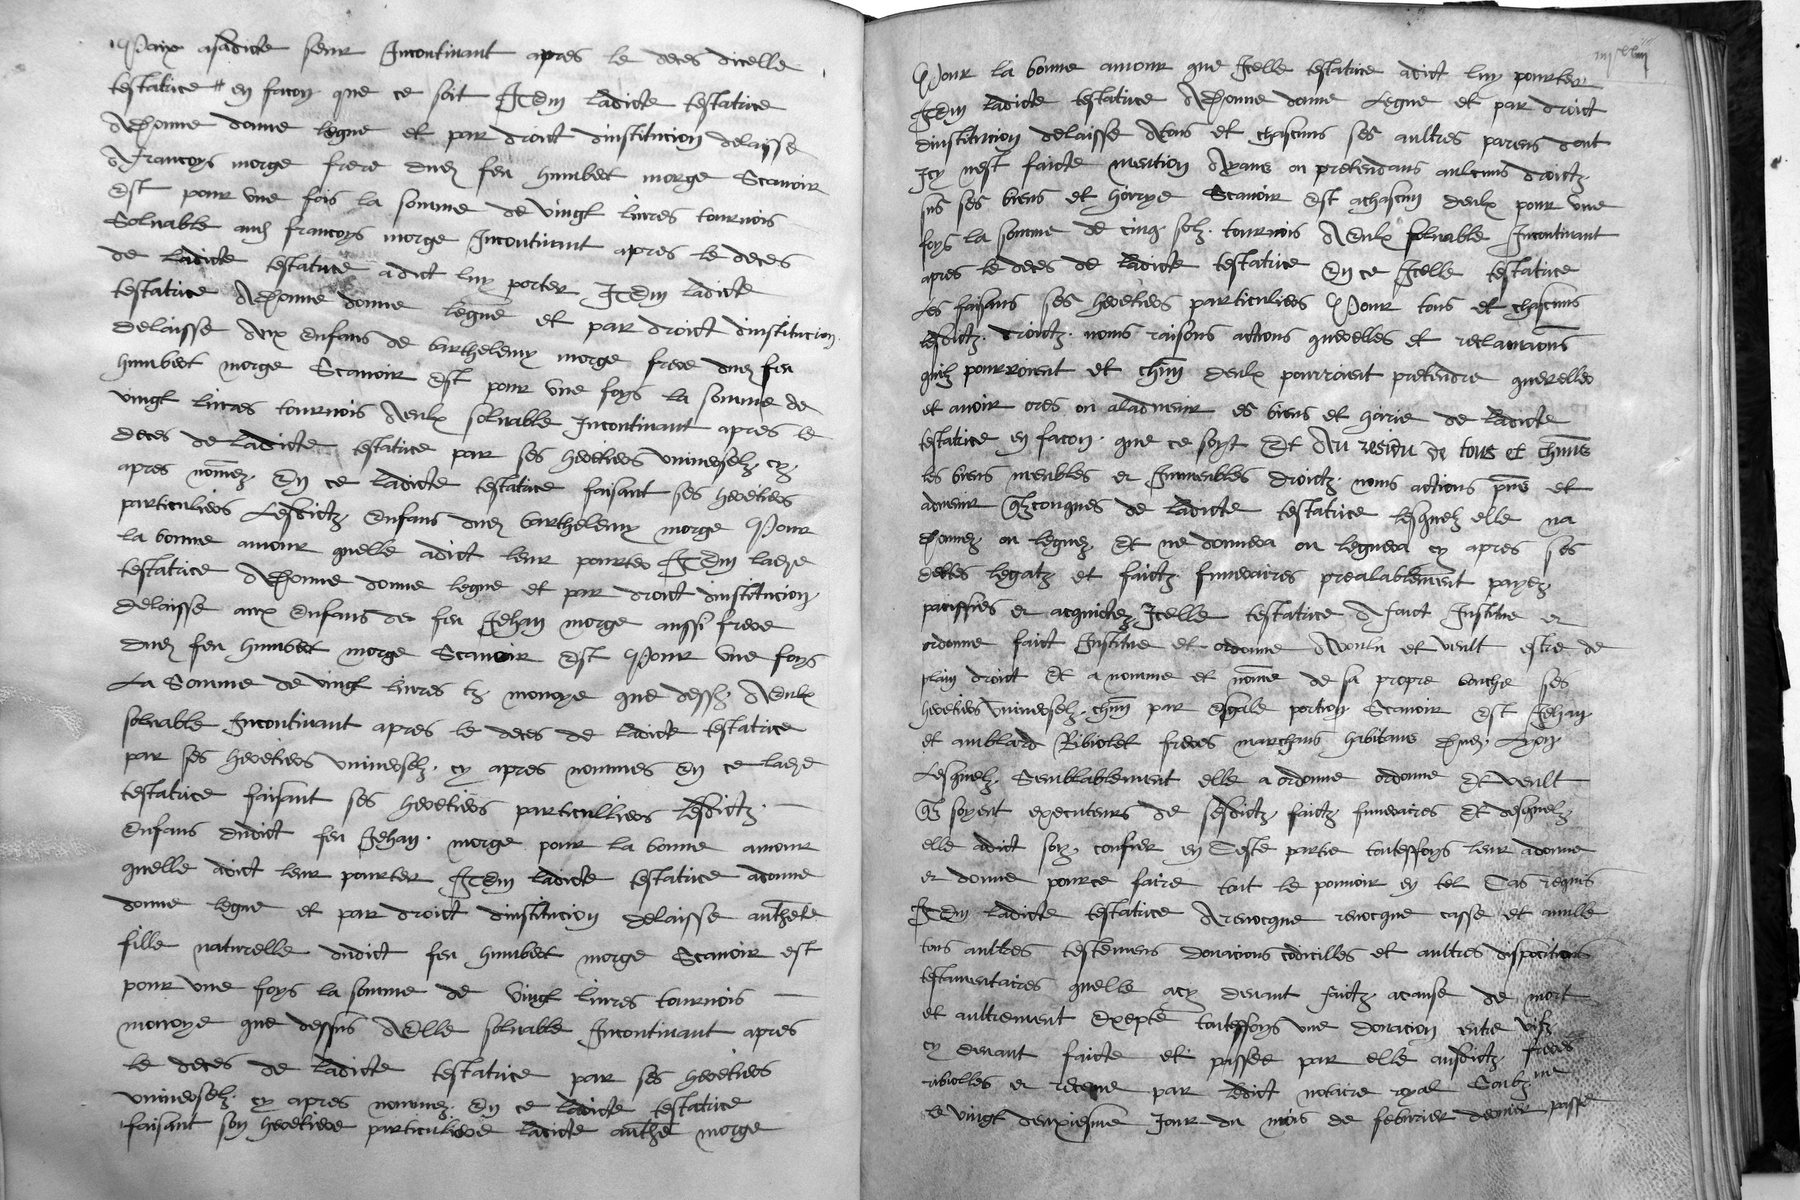 Paix asadicte seur Incontinant apres le deces dicelle
testatrice en facon que ce soit ITEm ladicte testatrice
Adonne donne legue et par droict dinstitucion delaisse
A francoys morge frere dud feu humbert morge Scavoir
Est pour une fois la somme de vingt livres tournois
Solvable aud francoys morge Incontinant apres le deces
de ladicte testatrice adict luy porter ITEm ladicte
testatrice Adonne donne legue et par droict dinstitucion
delaisse Aux Enfans de barthelemy morge frere dud feu
humbert morge Scavoir Est pour une foys la somme de
vingt livres tournois Aeulx solvable Incontinant apres le
deces de ladicte testatrice par ses heretiers universelz cy
apres nommez En ce ladicte testatrice faisant ses heretiers
particuliers Lesdictz Enfans dud barthelemy morge Pour
la bonne amour quelle adict leur pourter ITEm ladte
testatrice Adonne donne legue et par droict dinstitucion
delaisse aux Enfans de feu Jehan morge aussi frere
dud feu humbert morge Scavoir Est Pour une foys
La Somme de vingt livres tz monoye que dessus AEulx
solvable Incontinant apres le deces de ladicte testatrice
par ses heretiers universelz cy apres nommes En ce ladte
testatrice faisant ses heretiers particulliers Lesdictz
Enfans dudict feu Jehan morge pour la bonne amour
quelle adict leur pourter ITEm ladicte testatrice adonne
donne legue et par droict dinstitucion delaisse anthete
fille naturelle dudict feu humbert morge Scavoir est
pour une foys la somme de vingt livres tournois
monoye que dessus AElle solvable Incontinant apres
le deces de ladicte testatrice par ses heretiers
universelz cy apres nommez En ce ladicte testatrice
faisant son heretiere particuliere ladicte anthe morge
Pour la bonne amour que Icelle testatrice adict luy pourter
ITEm ladicte testatrice Adonne donne Legue et par droict
dinstitucion delaisse Atous et chascuns ses aultres parens dont
Icy nest faicte mention Ayans ou pretendans aulcuns droictz
sus ses biens et hoirye Scavoir Est achascun deulx pour une
foys la somme de cinq solz tournois AEulx solvable Incontinant
apres le deces de ladicte testatrice En ce Icelle testatrice
Les faisans ses heretiers particuliers Pour tous et chascuns
lesdictz droictz noms raisons actions querelles et reclamations
quilz pourroient et chun deulx pourroient pretendre quereller
et avoir ores ou aladvenir es biens et hoirie de ladicte
testatrice en facon que ce soyt Et Au residu de tous et chuns
les biens meubles et Immeubles droictz noms actions pns et
advenir quelzconques de ladicte testatrice lesquelz elle na
donnez ou leguez Et ne donnera ou leguera cy apres ses
debtes legatz et faictz funeraires prealablement payez
paciffies et acquictez Icelle testatrice A faict Institue et
ordonne faict Institue et ordonne Avoulu et veult estre de
plain droict Et a nomme et nomme de sa propre bouche ses
heretiers universelz chun par Esgale portion Scavoir Est Jehan
et amblard Ribiolet freres marchans habitans dud Lyon
Lesquelz Semblablement elle a ordonne ordonne Et veult
quilz soyent executeurs de sesdictz faictz funeraires Et desquelz
elle adict soy confier en Ceste partie touteffoys leur adonne
et donne pource faire tout le pouvoir en tel Cas requis
ITEm ladicte testatrice Arevocque revocque casse et anulle
tous aultres testemens donacions codicilles et aultres dispocitions
testamentaires quelle acy devant faictz acause de mort
et aultrement Exepte touteffoys une donacion entre vifz
cy devant faicte et passee par elle ausdictz freres
ribiolles et receue par ledict notaire royal
le vingt deuxiesme Jour du mois de febvrier dernier passe